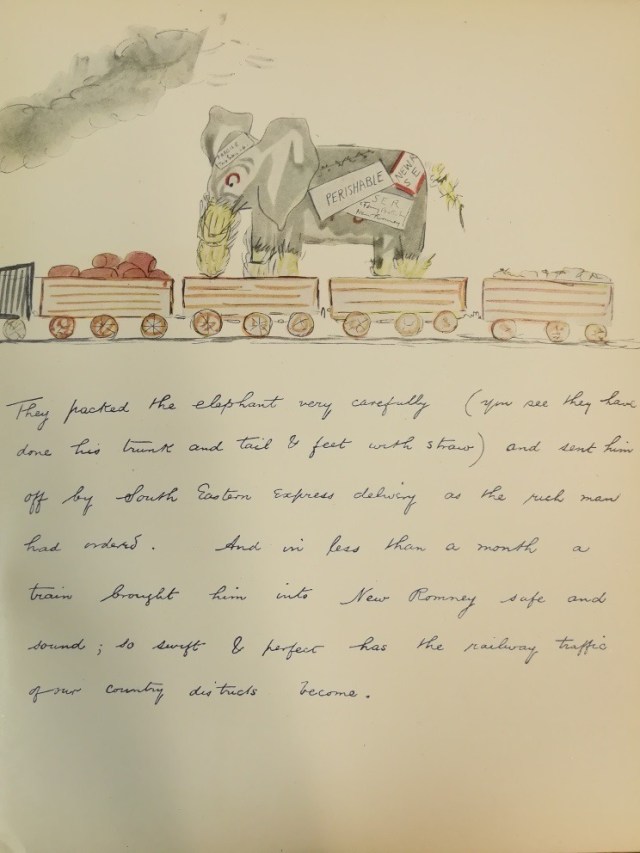 PERISHABLE
S.E.R.
New Romney
They packed the elephant very carefully (you see they have
done his trunk and tail & feet with straw) and sent him
off by South Eastern Express delivery as the rich man
had ordered. And in less than a month a
train brought him into New Romney safe and
sound; so swift & perfect has the railway traffic
of our country districts become.